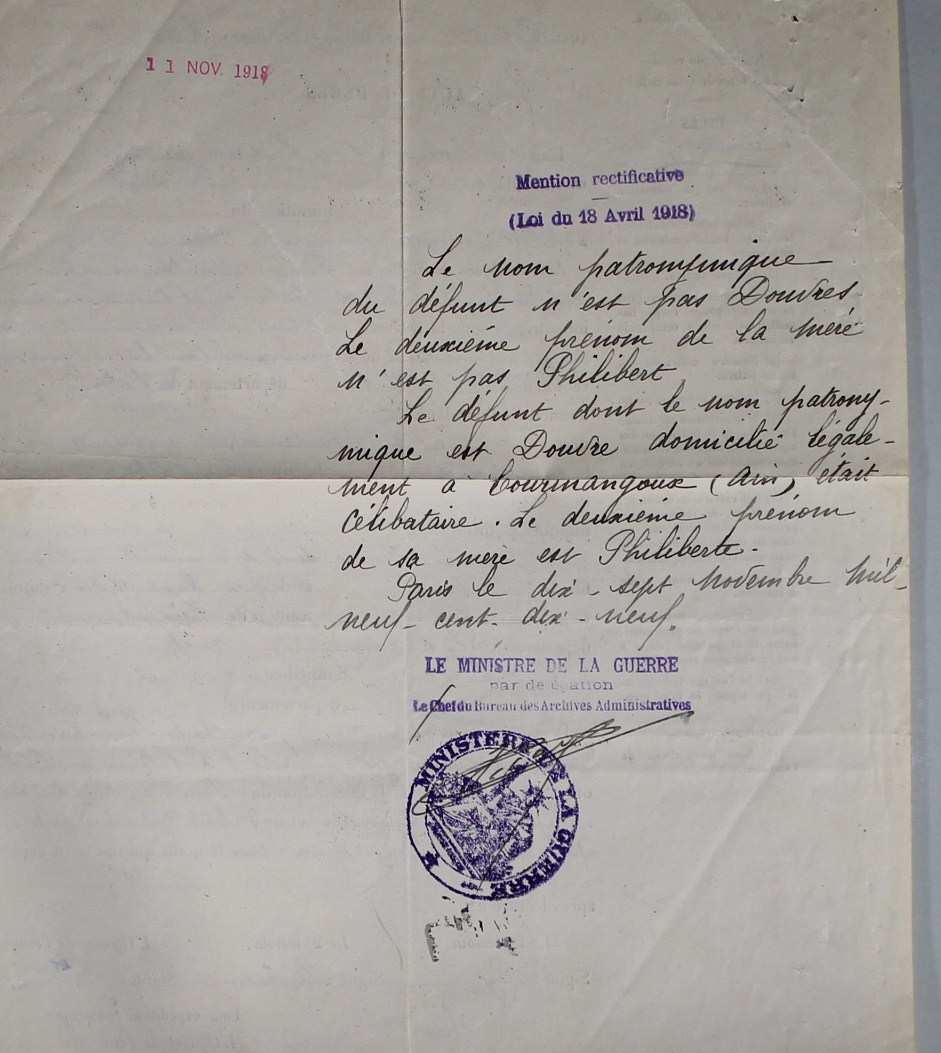 11 NOV. 1918
Mention rectificative
(Loi du 18 Avril 1918)
Le nom patronymique
du défunt n'est pas Douvres
Le deuxième prénom de la mère
n'est pas Philibert
Le défunt dont le nom patrony-
mique est Douvre domicilié légale-
ment à Courmangoux (Ain) était
célibataire. Le deuxième prénom
de sa mère est Philiberte.
Paris le dix-sept Novembre Mil-
neuf-cent-dix-neuf.
LE MINISTRE DE LA GUERRE
par délégation
Le Chef du Bureau des Archives Administratives
MINISTERE DE LA GUERRE